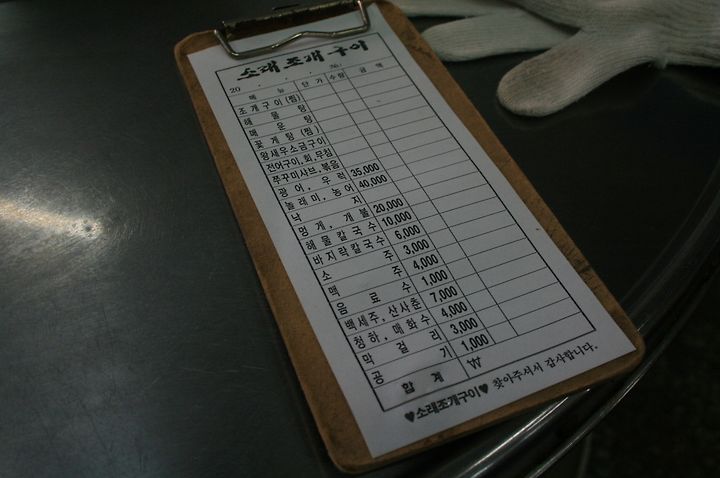 소래 조개 구이
20 . . . №:
메 뉴 단가 수량 금 액
조개구이(찜)
해 물 탕
매 운 탕
꽃게탕(찜)
왕새우소금구이
전어구이,회,무침
쭈꾸미샤브,볶음
광어, 우럭 35,000
놀래미, 농어 40,000
낙 지
멍게, 개불 20,000
해물칼국수 10,000
바지락칼국수 6,000
소 주 3,000
맥 주 4,000
음 료 수 1,000
백세주, 산사춘 7,000
청하, 매화수 4,000
막 걸 리 3,000
공 기 1,000
합 계 ₩
♥소래조개구이♥ 찾아주셔서 감사합니다.